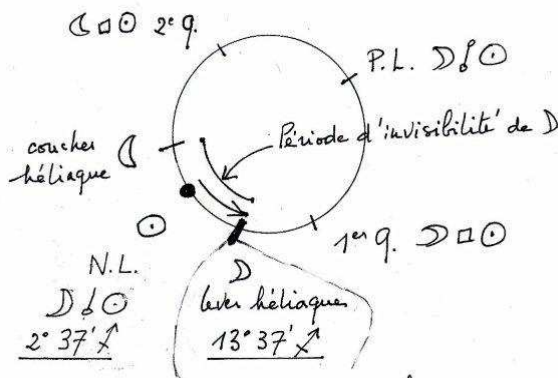 ☾□☉ 2e q.
P.L. ☽☍☉
coucher ☾
héliaque
Période d'invisibilité de ☽
☉
1er q. ☽□☉
N.L.
☽☌☉
2° 37' ♐
☽
lever héliaque
13° 37' ♐